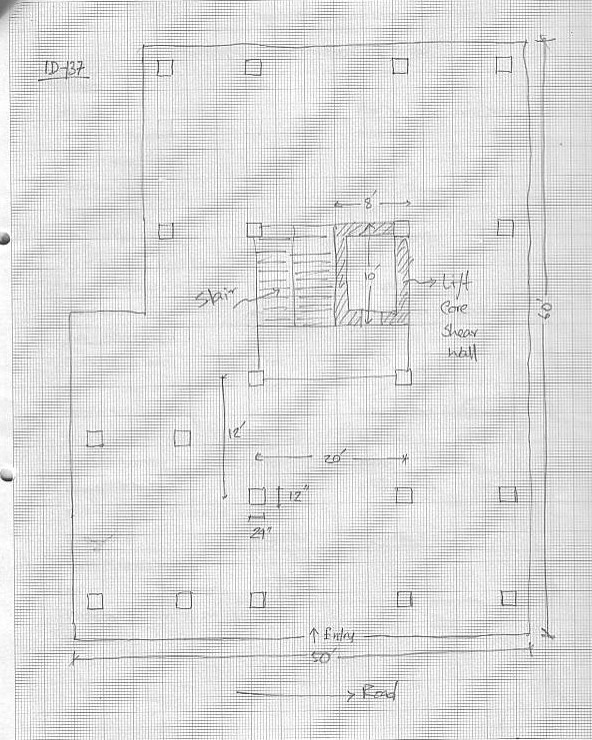 ID-137
8'
10'
Stair
Lift
Core
Shear
Wall
60'
12'
20'
12"
24"
↑ Entry
50'
→ Road